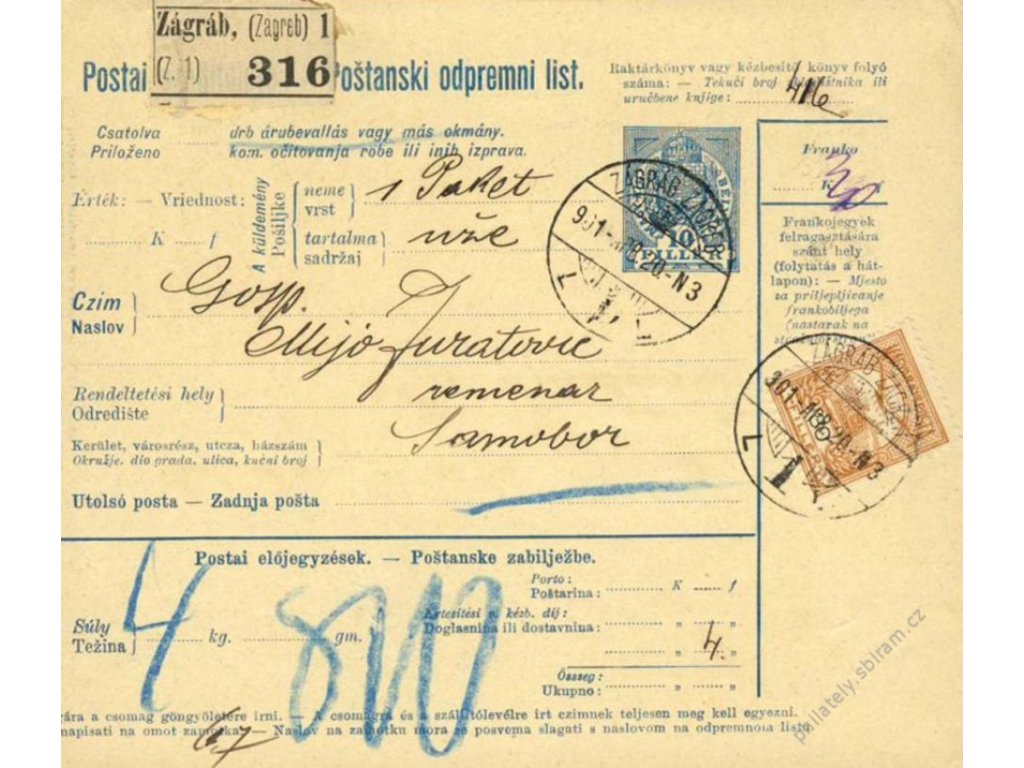 Zágráb, (Zagreb) 1
(Z. 1) 316
Postai Poštanski odpremni list.
Raktárkönyv vagy kézbesítő könyv folyó
száma: — Tekući broj skladištnika ili
uručbene knjige:
Csatolva drb árubevallás vagy más okmány.
Priloženo kom. očitovanja robe ili inih izprava.
Franko
K f
Érték: — Vriednost:
K f
A küldemény
Pošiljke
neme
vrst
1 Paket
tartalma
sadržaj
uže
10
FILLÉR
ZÁGRÁB ZAGREB
901
N3
1
Frankojegyek
felragasztására
szánt hely
(folytatás a hát-
lapon): — Mjesto
za priljepljivanje
frankobiljega
(nastavak na
Czim
Naslov
Gosp.
Mijo Juratovic
remenar
Samobor
Rendeltetési hely
Odredište
Kerület, városrész, utcza, házszám
Okružje, dio grada, ulica, kućni broj
ZÁGRÁB ZAGREB
901
N3
1
Utolsó posta — Zadnja pošta
Postai előjegyzések. — Poštanske zabilježbe.
Súly
Težina
4 kg. 800 gm.
Porto:
Poštarina: K f
Értesítési v. kézb. dij:
Doglasnina ili dostavnina: „ „
„ 4. „
Összeg:
Ukupno: „ „
ára a csomag göngyöletére irni. — A csomagra és a szállítólevélre irt czimnek teljesen meg kell egyezni.
napisati na omot zamotka. — Naslov na zamotku mora se posvema slagati s naslovom na odpremnom listu
philately.sbiram.cz